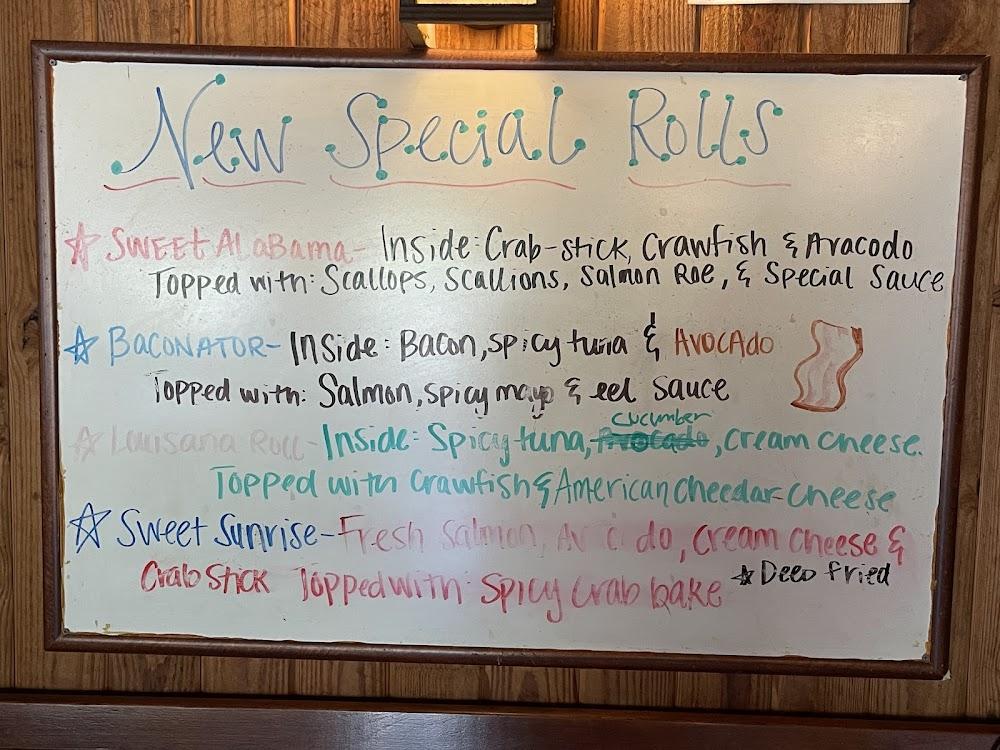 New Special Rolls
☆ SWEET AlaBama - Inside: Crab-stick, Crawfish & Avacodo
Topped with: Scallops, Scallions, Salmon Roe, & Special Sauce
☆ BACONATOR - Inside: Bacon, spicy tuna & AVOCADO
Topped with: Salmon, spicy mayo & eel Sauce
cucumber
☆ Louisana Roll - Inside: Spicy tuna, Avocado, cream cheese.
Topped with crawfish & American cheedar-cheese
☆ Sweet Sunrise - Fresh Salmon, Avacido, cream cheese &
Crab Stick Topped with: Spicy Crab bake ☆ Deep fried